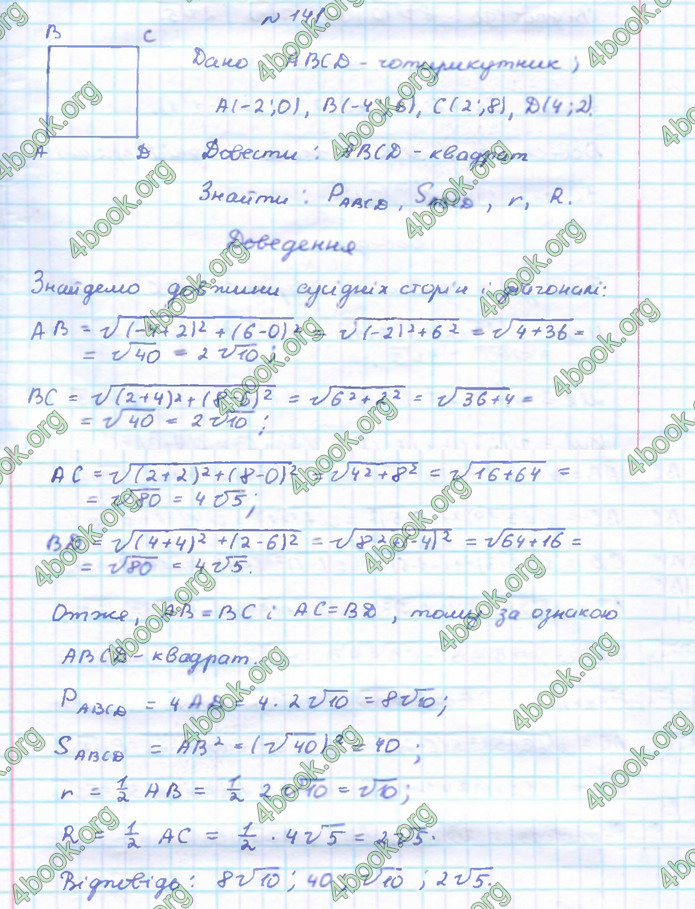 N 141
B C
Дано ABCD - чотирикутник;
A(-2;0), B(-4;6), C(2;8), D(4;2).
A D Довести: ABCD - квадрат
Знайти: P_ABCD, S_ABCD, r, R.
Доведення
Знайдемо довжини сусідніх сторін і діагоналі:
AB = √((-4+2)² + (6-0)²) = √((-2)²+6²) = √(4+36) =
= √40 = 2√10;
BC = √((2+4)²+(8-6)²) = √(6²+2²) = √(36+4) =
= √40 = 2√10;
AC = √((2+2)²+(8-0)²) = √(4²+8²) = √(16+64) =
= √80 = 4√5;
BD = √((4+4)² + (2-6)²) = √(8²+(-4)²) = √(64+16) =
= √80 = 4√5.
Отже, AB = BC і AC = BD, тому за ознакою
ABCD - квадрат.
P_ABCD = 4 AD = 4 · 2√10 = 8√10;
S_ABCD = AB² = (√40)² = 40;
r = 1/2 AB = 1/2 2√10 = √10;
R = 1/2 AC = 1/2 · 4√5 = 2√5.
Відповідь: 8√10; 40; √10; 2√5.
4book.org